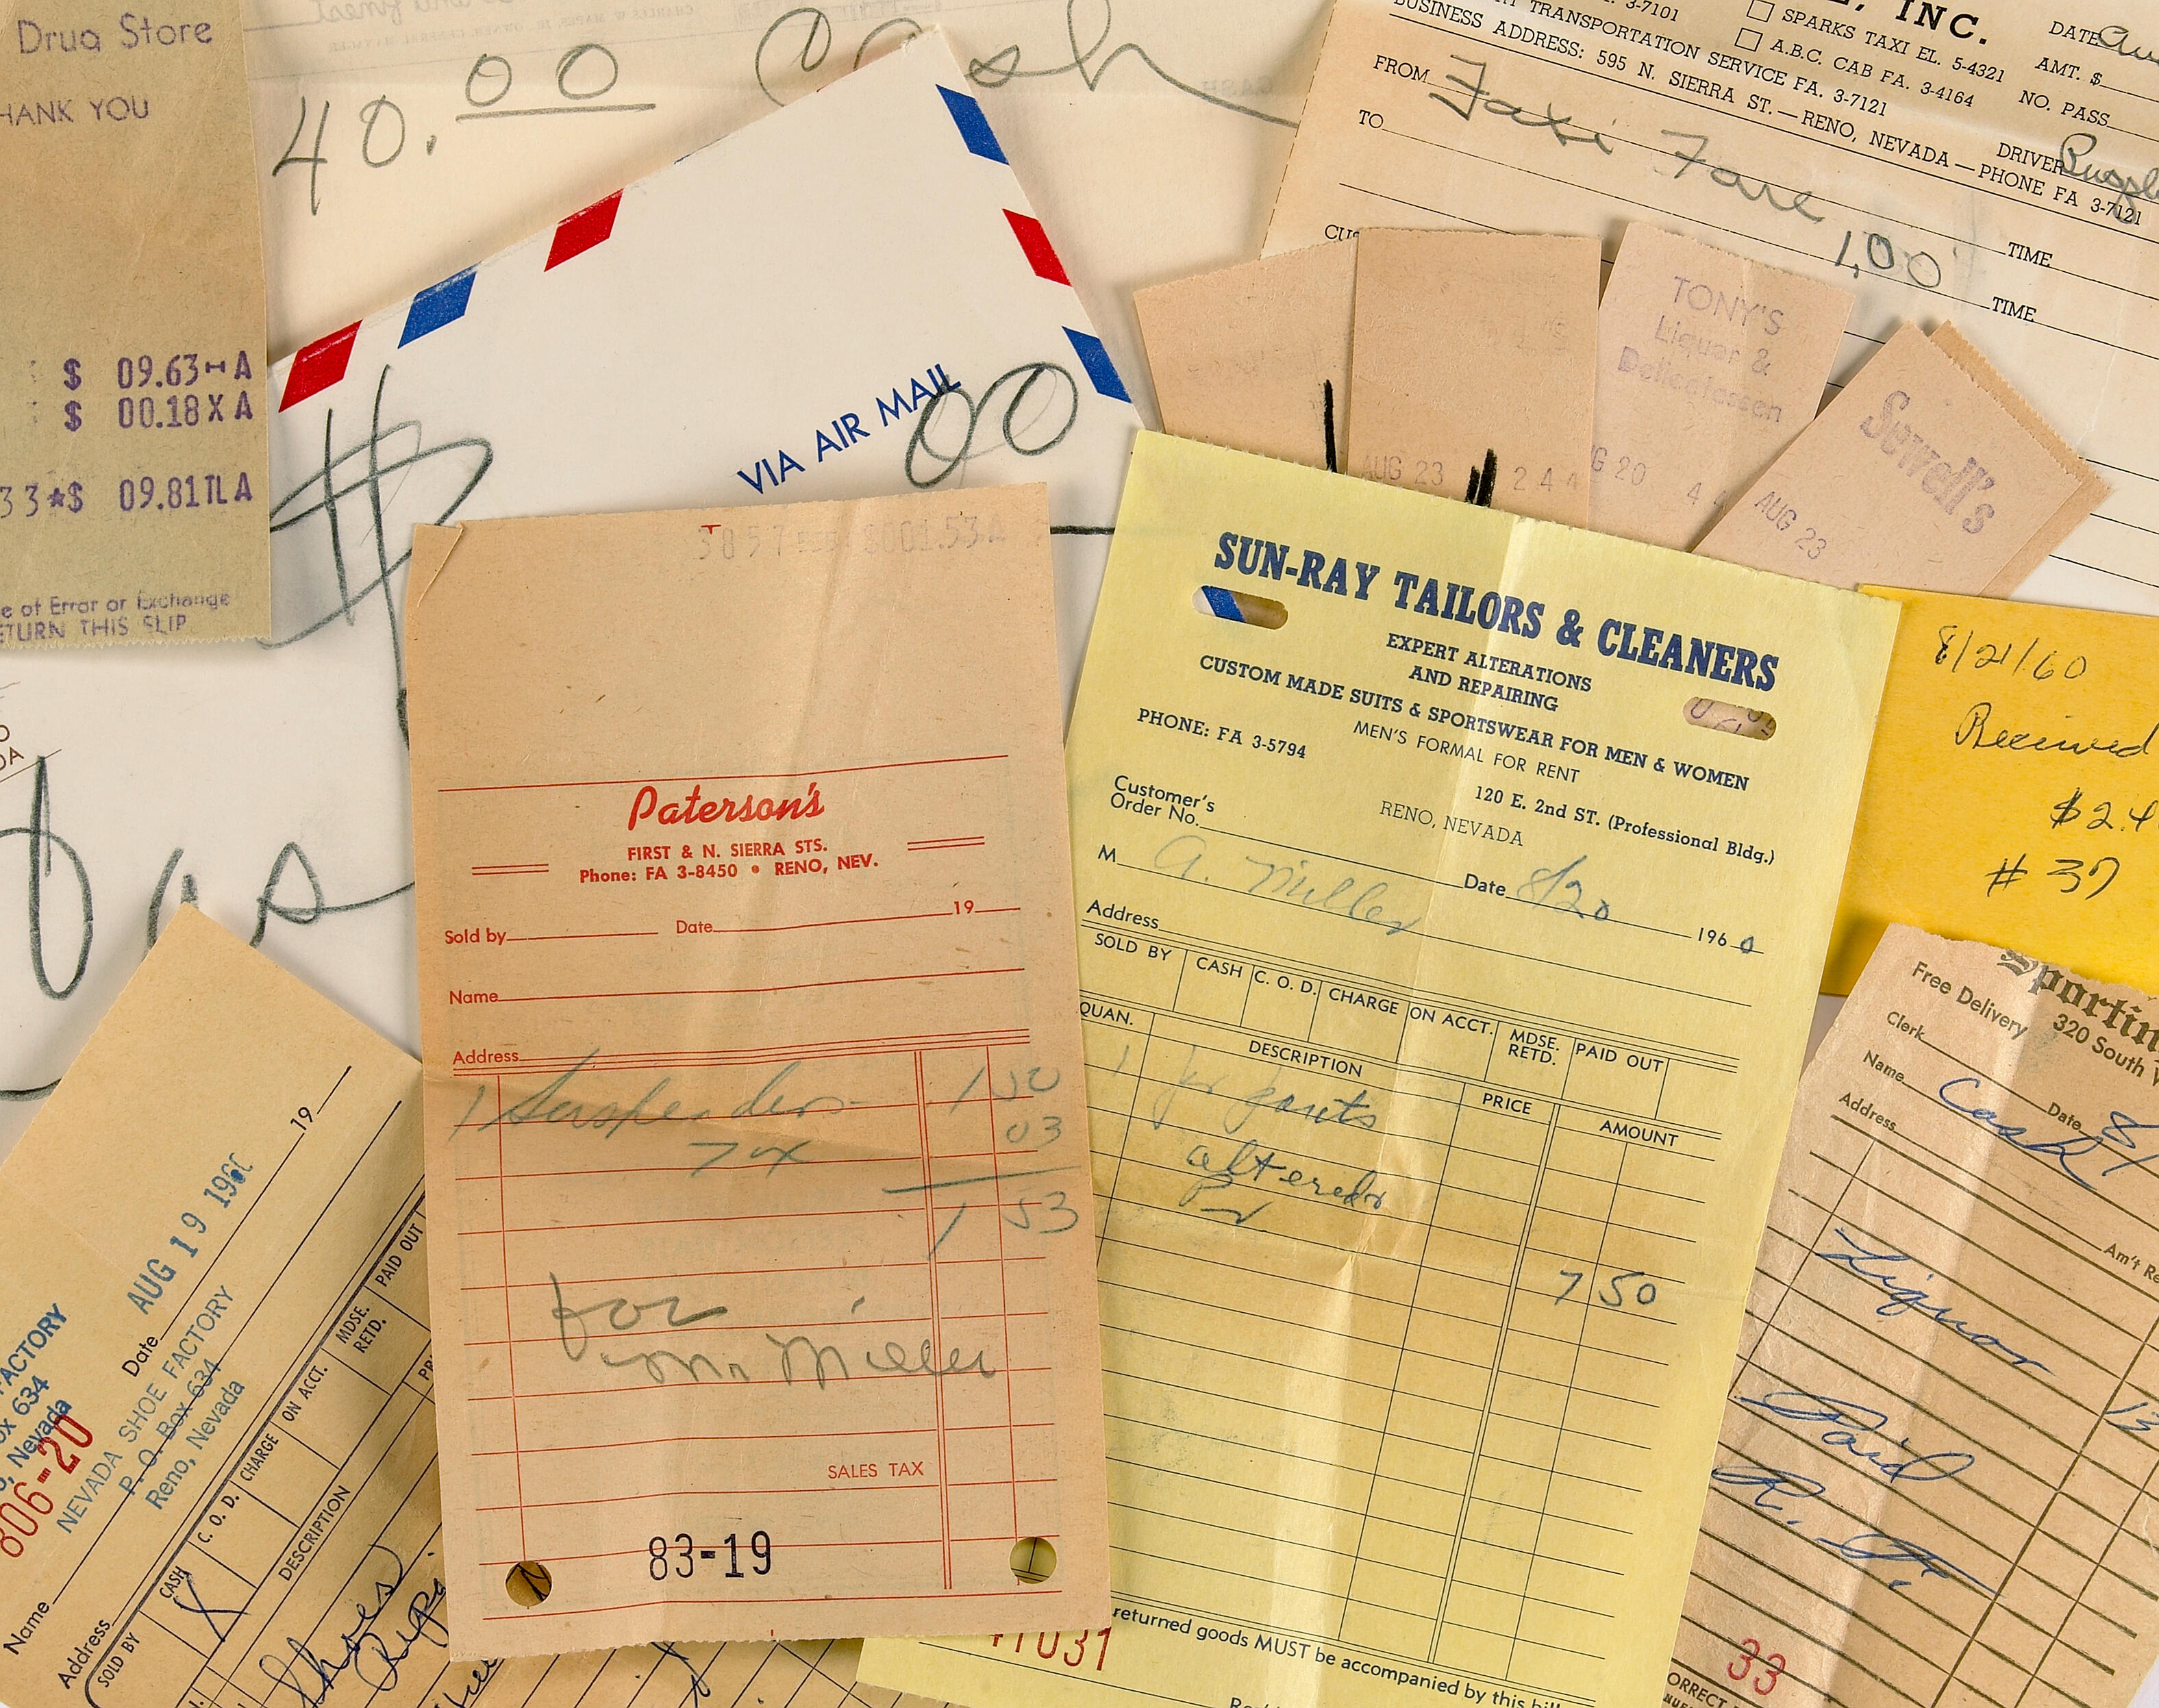 Drug Store
THANK YOU
$ 09.63 A
$ 00.18 X A
33*$ 09.81 TL A
e of Error or Exchange
ETURN THIS SLIP
40.00 Cash
VIA AIR MAIL
$
00
, INC.
3-7101
TRANSPORTATION SERVICE FA. 3-7121
BUSINESS ADDRESS: 595 N. SIERRA ST.—RENO, NEVADA—PHONE FA 3-7121
SPARKS TAXI EL. 5-4321
A.B.C. CAB FA. 3-4164
DATE
AMT. $
NO. PASS
DRIVER
FROM Taxi Fare
TO
1.00
TIME
TIME
AUG 23 244
TONY'S
Liquor &
Delicatessen
G 20 44
Sewell's
AUG 23
3857 $001.53A
Paterson's
FIRST & N. SIERRA STS.
Phone: FA 3-8450 • RENO, NEV.
Sold by Date 19
Name
Address
1 Suspenders 1 50
Tax 03
1 53
for
Mr Miller
SALES TAX
83-19
SUN-RAY TAILORS & CLEANERS
EXPERT ALTERATIONS
AND REPAIRING
CUSTOM MADE SUITS & SPORTSWEAR FOR MEN & WOMEN
PHONE: FA 3-5794
MEN'S FORMAL FOR RENT
120 E. 2nd ST. (Professional Bldg.)
RENO, NEVADA
Customer's
Order No.
M A. Miller Date 8/20 1960
Address
SOLD BY CASH C. O. D. CHARGE ON ACCT. MDSE. RETD. PAID OUT
QUAN. DESCRIPTION PRICE AMOUNT
1 pr pants
altered
7 50
returned goods MUST be accompanied by this bill
8/21/60
Received
$2.4
# 37
Sportin
320 South V
Free Delivery
Clerk
Name Cash Date 8/
Address
Am't Re
Liquor
Paid
R. T.
33
ORRECT
19
AUG 19 1960
Date
FACTORY
ox 634
o, Nevada
806-20
NEVADA SHOE FACTORY
P. O. Box 634
Reno, Nevada
Name
Address
SOLD BY CASH C. O. D. CHARGE ON ACCT. MDSE. RETD. PAID OUT
X
DESCRIPTION PRI
Shoes